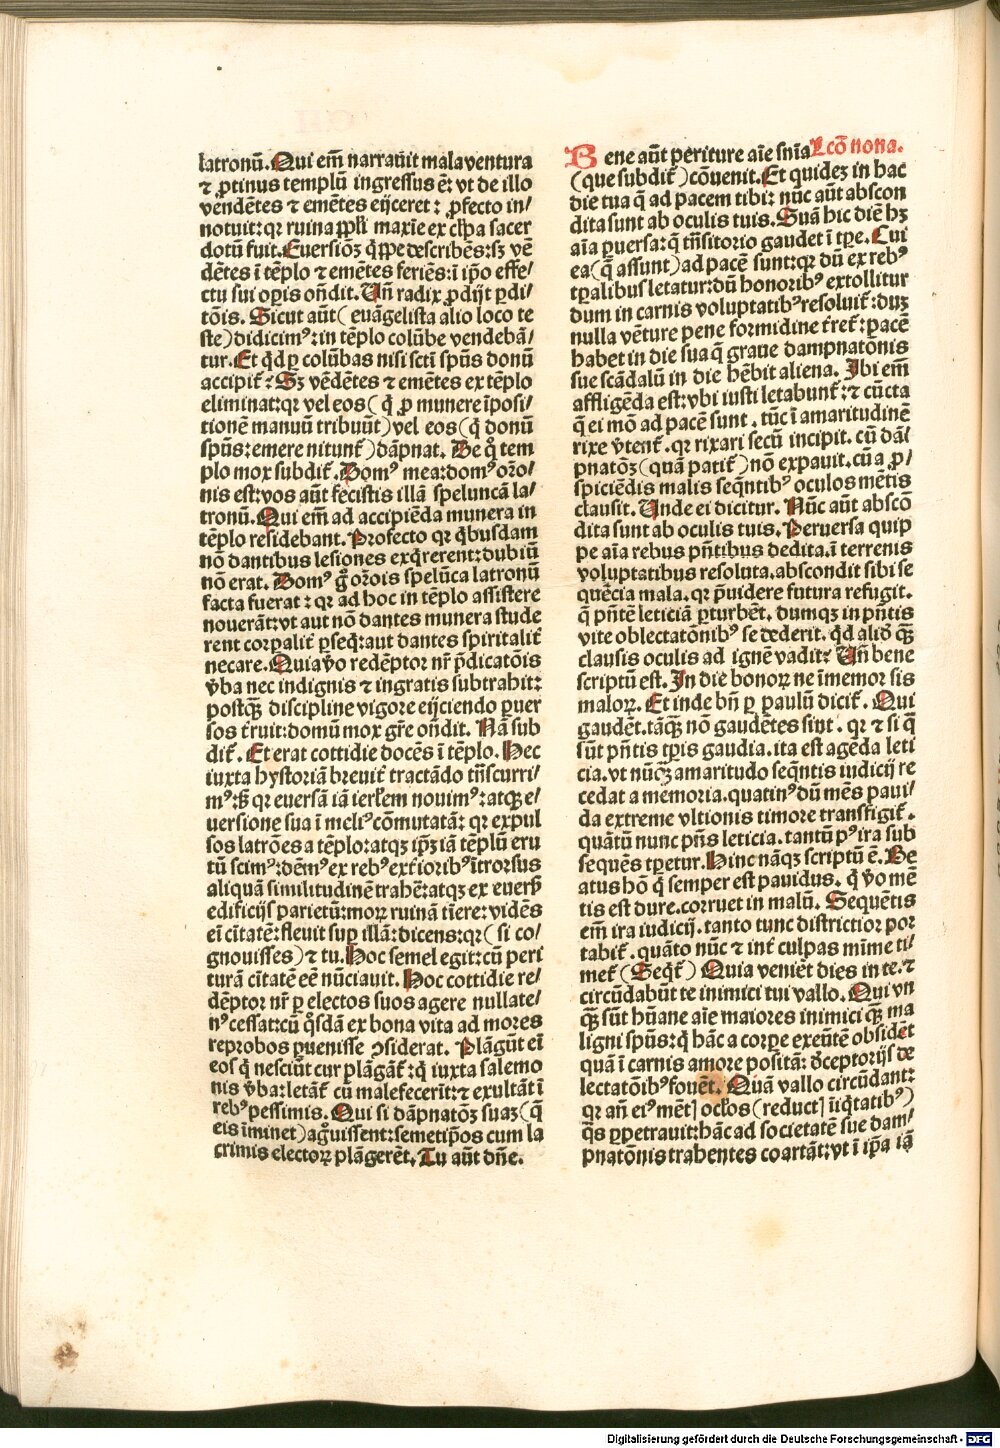 latronū. Qui em̄ narrauit mala ventura
⁊ ꝓtinus templū ingressus ē: vt de illo
vendētes ⁊ emētes eijceret: ꝓfecto in/
notuit: qꝛ ruina ppl'i maxīe ex cl'pa sacer
dotū fuit. Euersiōꝫ q̇ppe describēs: sꝫ vē
dētes ī tēplo ⁊ emētes feriēs: ī ip̄o effe/
ctu sui oꝑis on̄dit. Vn̄ radix ꝓdijt ꝑdi/
tōis. Sicut aūt (euāgelista alio loco te
ste) didicimꝰ: in tēplo colūbe vendebā/
tur. Et qͥd ꝑ colūbas nisi sctī spūs donū
accipit̄? Sꝫ vēdētes ⁊ emētes ex tēplo
eliminat: qꝛ vel eos (q̇ ꝓ munere īposi/
tionē manuū tribuūt) vel eos (q̇ donū
spūs: emere nitunt̄) dāpnat. De qͦ tem
plo mox subdit̄. Domꝰ mea: domꝰ orō/
nis est: vos aūt fecistis illā speluncā la/
tronū. Qui em̄ ad accipiēda munera in
tēplo residebant. Profecto qꝛ q̇busdam
nō dantibus lesiones exq̇rerent: dubiū
nō erat. Domꝰ gͦ orōis spelūca latronū
facta fuerat: qꝛ ad hoc in tēplo assistere
nouerāt: vt aut nō dantes munera stude
rent corꝑalit̄ ꝑseq̇: aut dantes spiritalit̄
necare. Quia ꝟo redēptor nr̄ p̄dicatōis
ꝟba nec indignis ⁊ ingratis subtrahit:
postqͣꝫ discipline vigore eijciendo ꝑuer
sos t̄ruit: domū mox gr̄e on̄dit. Nā sub
dit̄. Et erat cottidie docēs ī tēplo. Hec
iuxta hystoriā breuit̄ tractādo tn̄scurri/
mꝰ: sꝫ qꝛ euersā iā ierl'em nouimꝰ: atqꝫ e/
uersione sua ī meliꝰ cōmutatā: qꝛ expul
sos latrōes a tēplo: atqꝫ ip̄ꝫ iā tēplū eru
tū scimꝰ: dēmꝰ ex rebꝰ ext̄ioribꝰ ītrorsus
aliquā similitudinē trahē: atqꝫ ex euersꝫ
edificijs parietū: moꝝ ruinā tīere: vidēs
eī cītatē: fleuit suꝑ illā: dicens: qꝛ (si co/
gnouisses) ⁊ tu. Hoc semel egit: cū peri
turā cītatē eē nūciauit. Hoc cottidie re/
dēptor nr̄ ꝑ electos suos agere nullate/
nꝰ cessat: cū qͦsdā ex bona vita ad mores
reprobos ꝑuenisse ↄsiderat. Plāgūt eī
eos q̇ nesciūt cur plāgāt̄: q̇ iuxta salemo
nis ꝟba: letāt̄ cū malefecerīt: ⁊ exultāt ī
rebꝰ pessimis. Qui si dāpnatōꝫ suaꝫ (q̄
eis īminet) agͦuissent: semetip̄os cum la
crimis electoꝝ plāgerēt. Tu aūt dn̄e.
Lcō nona.
Bene aūt periture aīe sn̄ia
(que subdit̄) cōuenit. Et quideꝫ in hac
die tua q̄ ad pacem tibi: nūc aūt abscon
dita sunt ab oculis tuis. Suā hic diē hꝫ
aīa ꝑuersa: q̄ tn̄sitorio gaudet ī tꝑe. Cui
ea (q̄ assunt) ad pacē sunt: qꝛ dū ex rebꝰ
tꝑalibus letatur: dū honoribꝰ extollitur
dum in carnis voluptatibꝰ resoluit̄: duꝫ
nulla vēture pene formidine t̄ret̄: pacē
habet in die sua q̄ graue dampnatōnis
sue scādalū in die hēbit aliena. Ibi em̄
affligēda est: vbi iusti letabunt̄: ⁊ cūcta
q̄ ei mō ad pacē sunt, tūc ī amaritudinē
rixe ꝟtent̄. qꝛ rixari secū incipit. cū dā/
pnatōꝫ (quā patit̄) nō expauit. cū a ꝓ/
spiciēdis malis seqn̄tibꝰ oculos mētis
clausit. Unde ei dicitur. Nūc aūt abscō
dita sunt ab oculis tuis. Peruersa quip
pe aīa rebus pn̄tibus dedita. ī terrenis
voluptatibus resoluta. abscondit sibi se
quēcia mala. qꝛ p̄uidere futura refugit.
q̄ pn̄tē leticiā ꝑturbēt. dumqꝫ in pn̄tis
vite oblectatōnibꝰ se dederit. qͥd aliō qͣꝫ
clausis oculis ad ignē vadit? Vn̄ bene
scriptū est. In die bonoꝝ ne īmemor sis
maloꝝ. Et inde bn̄ ꝑ paulū dicit̄. Qui
gaudēt. tāqͣꝫ nō gaudētes sint. qꝛ ⁊ si q̄
sūt pn̄tis tꝑis gaudia. ita est agēda leti
cia. vt nūqͣꝫ amaritudo seqn̄tis iudicij re
cedat a memoria. quatinꝰ dū mēs paui/
da extreme vltionis timore transfigit̄.
quātū nunc pn̄s leticia. tantū pꝰ ira sub
sequēs tꝑetur. Hinc nāqꝫ scriptū ē. Be
atus hō q̇ semper est pauidus. q̇ ꝟo mē
tis est dure. corruet in malū. Sequētis
em̄ ira iudicij. tanto tunc districtior por
tabit̄. quāto nūc ⁊ int̄ culpas mīme ti/
met̄ (Seqͥt̄) Quia veniēt dies in te. ⁊
circūdabūt te inimici tui vallo. Qui vn
qͣꝫ sūt hūane aīe maiores inimici qͣꝫ ma
ligni spūs: q̇ hāc a corꝑe exeūtē obsidēt
quā ī carnis amore positā: dceptorijs de
lectatōibꝰ fouēt. Quā vallo circūdant:
qꝛ an̄ eiꝰ mēt] ocl'os (reduct] īiqͥtatibꝰ)
q̄s ꝑpetrauit: hāc ad societatē sue dam/
pnatōnis trahentes coartāt: vt ī ip̄a iā
Digitalisierung gefördert durch die Deutsche Forschungsgemeinschaft - DFG